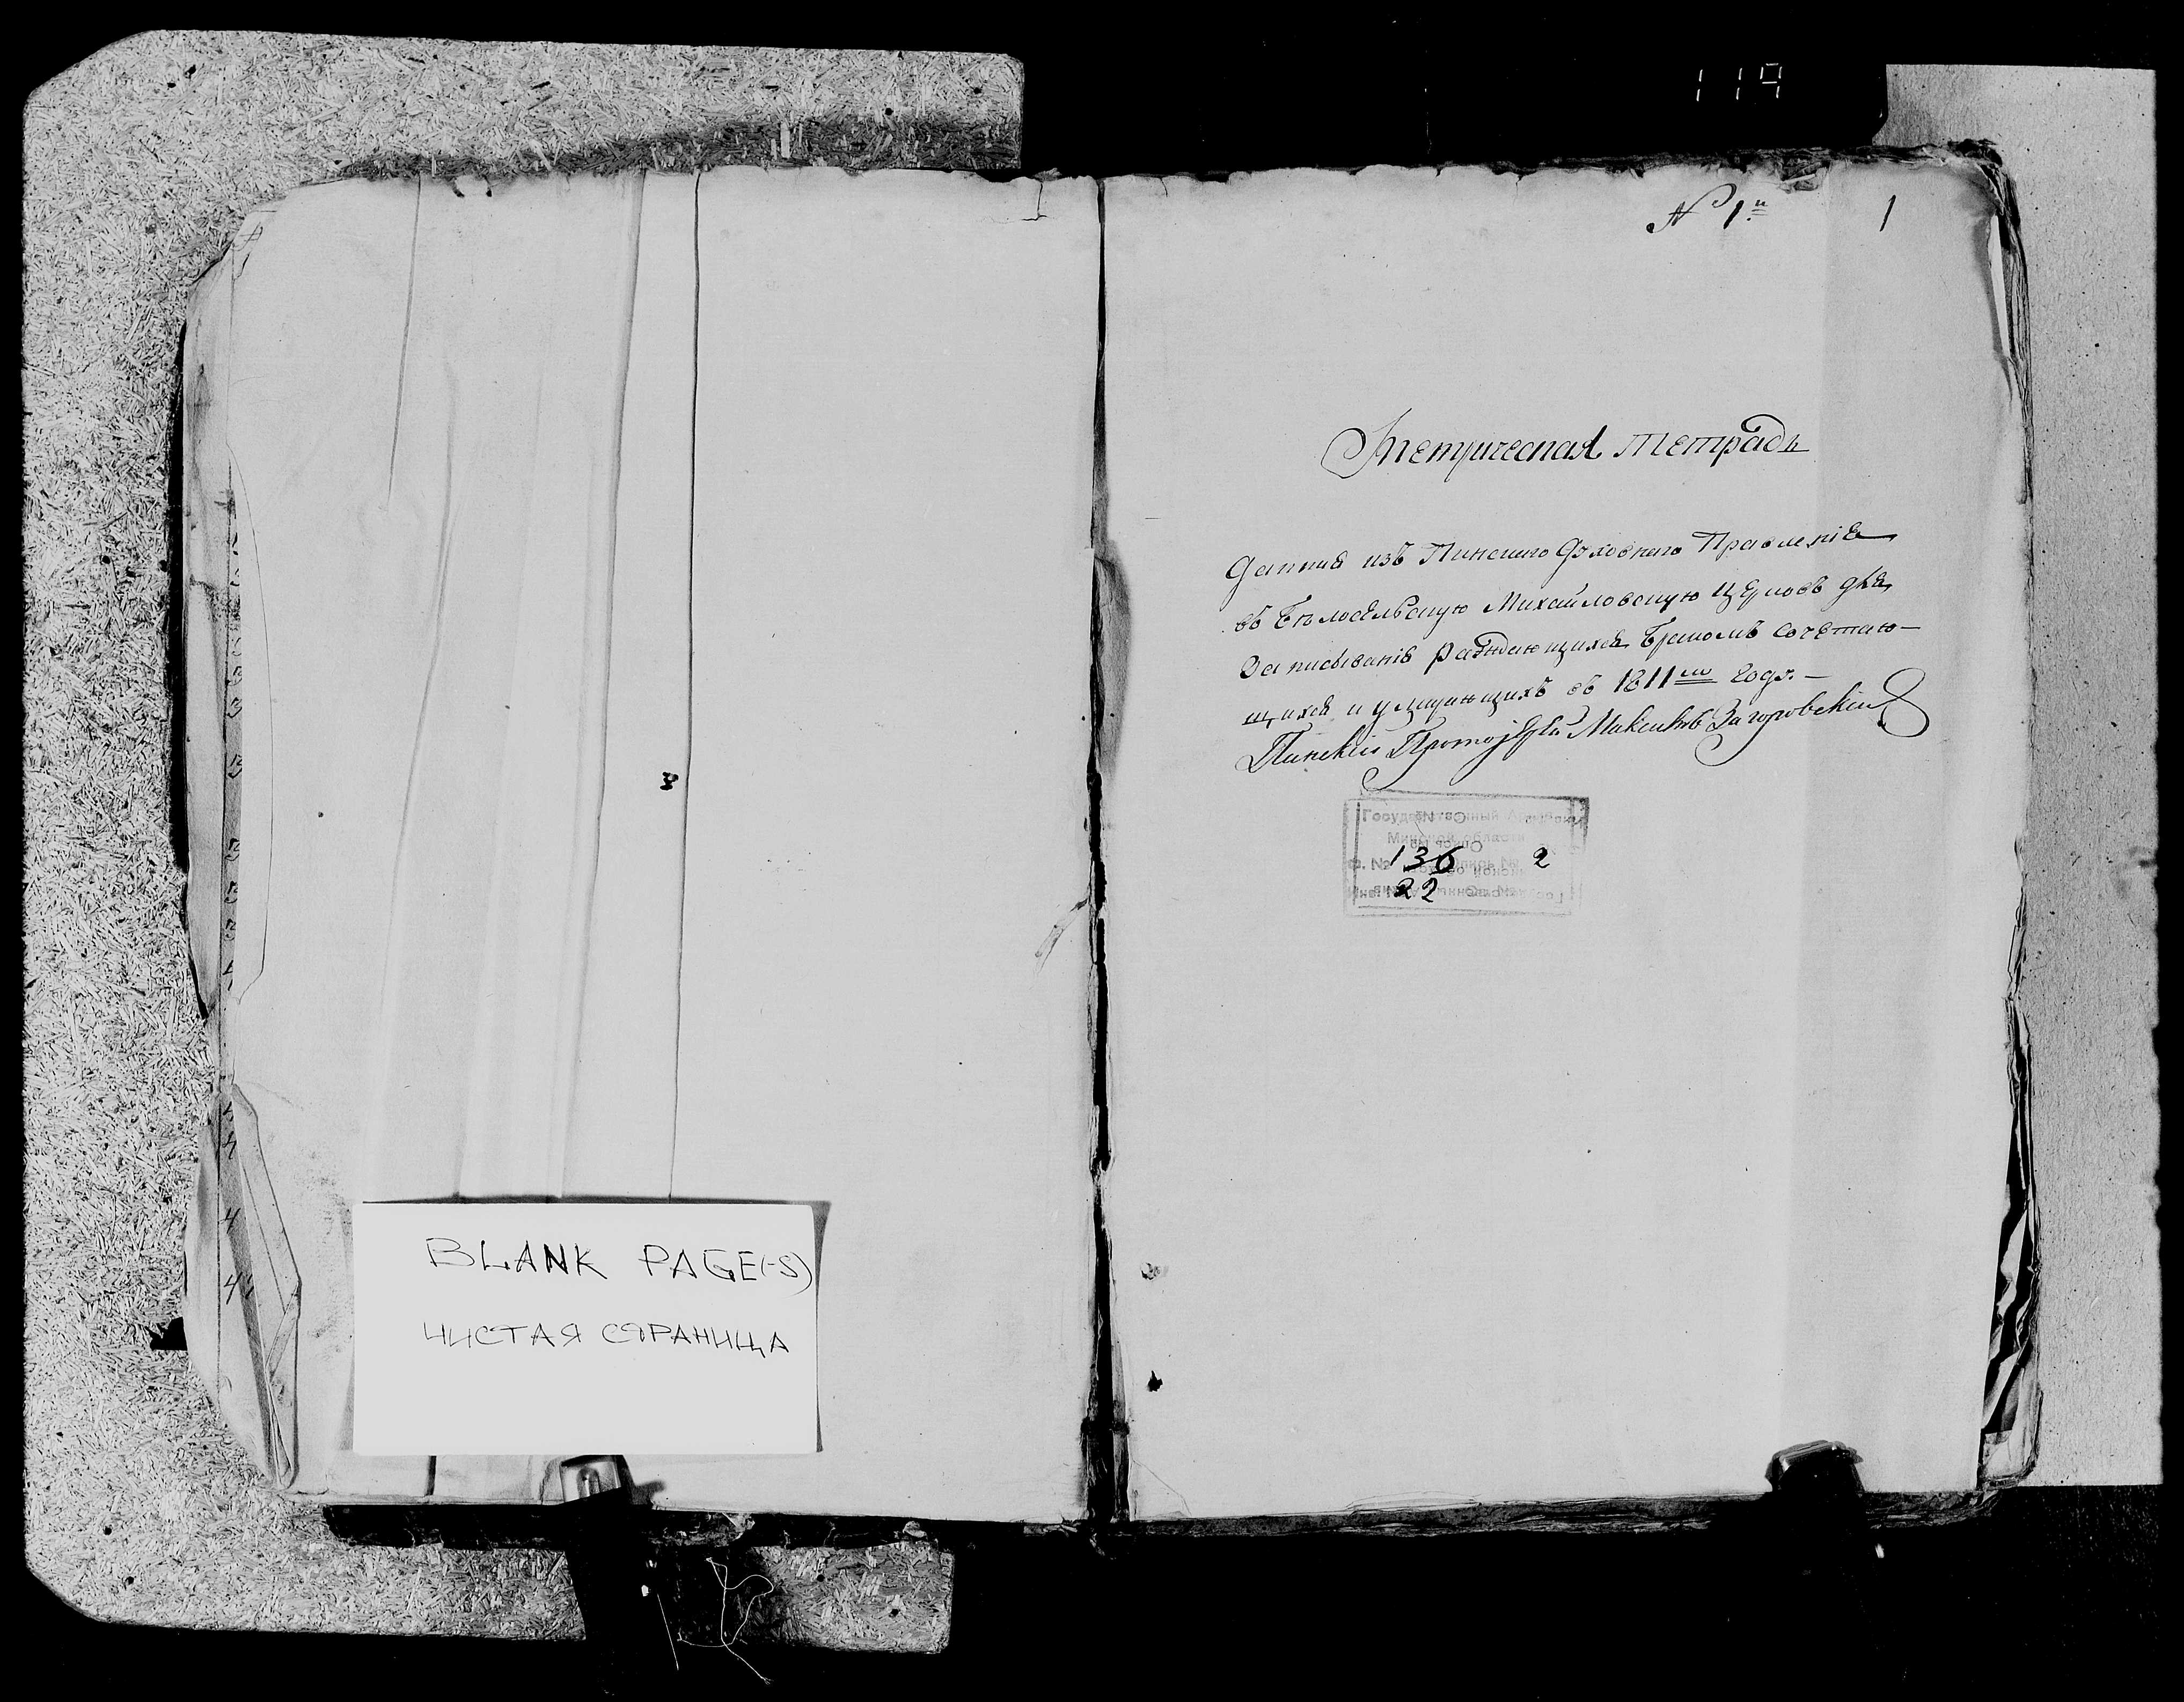 119
№ 1й
1
Метрическая тетрадь
Данная изъ Пинскаго Духовнаго Правленія
въ Бѣлосельскую Михайловскую Церковь для
Записыванія раждающихся Бракомъ сочетаю-
щихся и умирающихъ въ 1811мъ годъ.-
Пинскій Протоіерей Максимъ Загоровскій
Государственный
Минской области
Ф. № 136 Опись № 2
22
BLANK PAGE(-S)
ЧИСТАЯ СТРАНИЦА